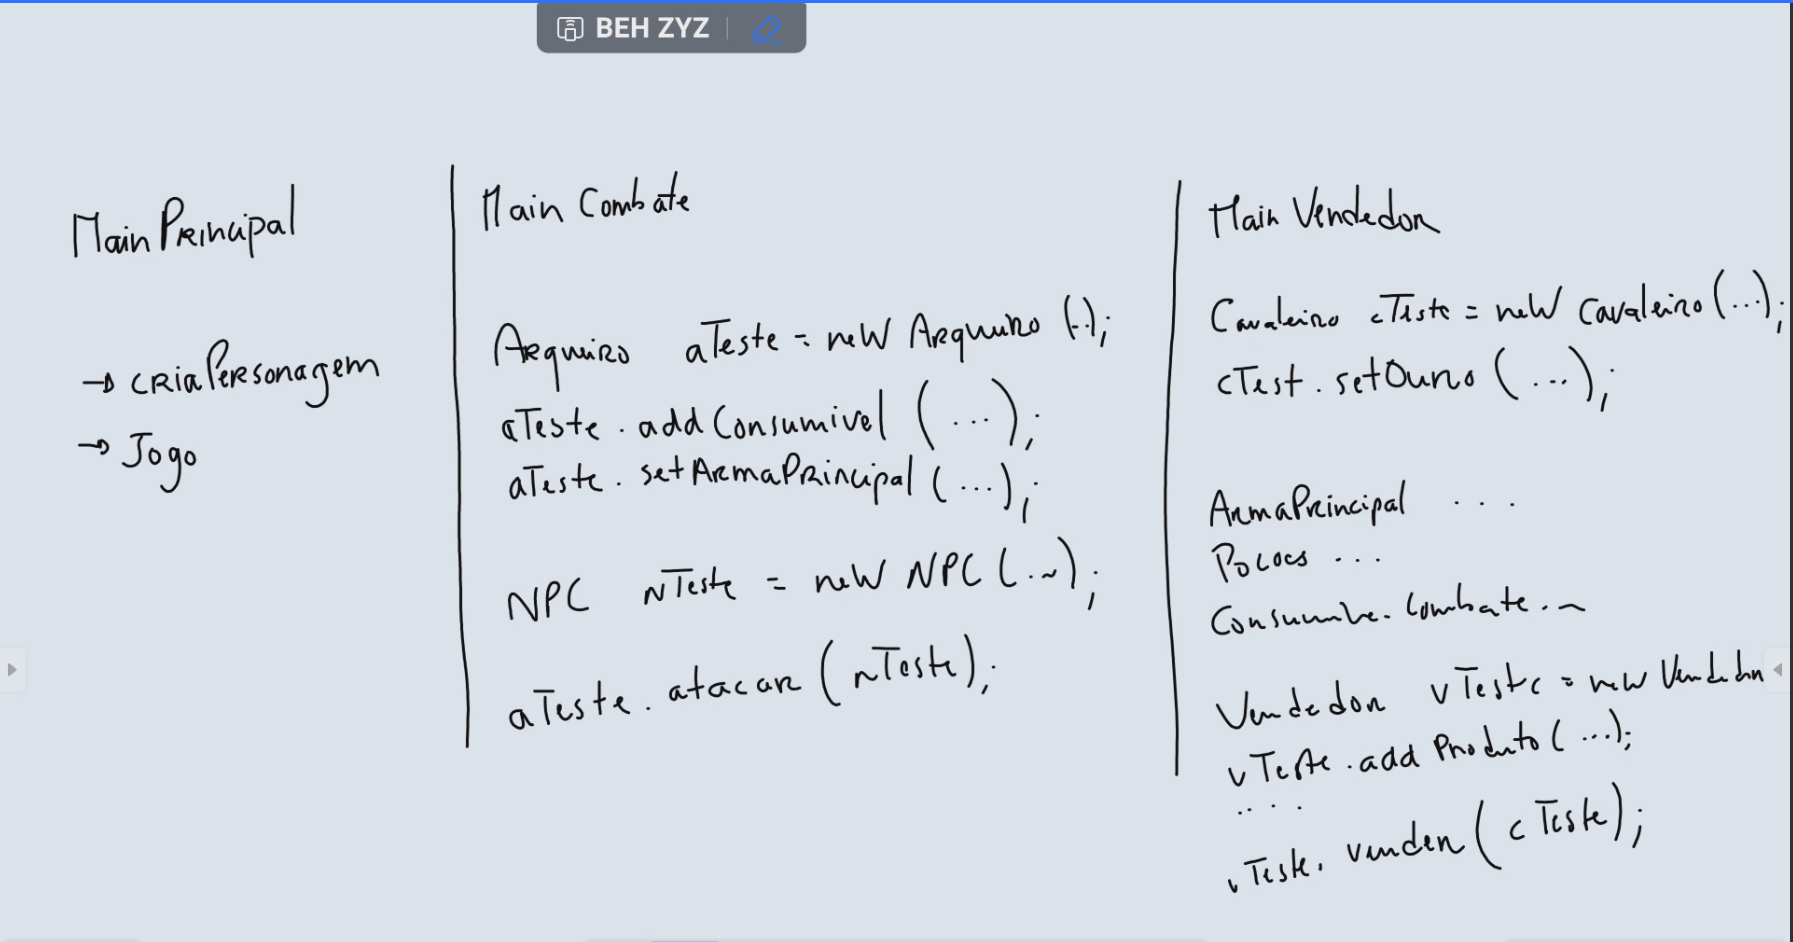 BEH ZYZ
Main Principal
→ criaPersonagem
→ Jogo
Main Combate
Arqueiro aTeste = new Arqueiro (...);
aTeste.addConsumivel (...);
aTeste.setArmaPrincipal (...);
NPC nTeste = new NPC (...);
aTeste.atacar (nTeste);
Main Vendedor
Cavaleiro cTeste = new Cavaleiro (...);
cTest.setOuro (...);
ArmaPrincipal ...
Pocoes ...
Vendedor vTeste = new Vendedor
vTeste.addProduto (...);
....
vTeste.vender (cTeste);